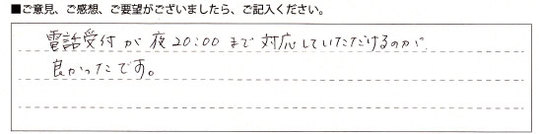 ■ご意見、ご感想、ご要望がございましたら、ご記入ください。
電話受付が夜20:00まで対応していただけるのが
良かったです。